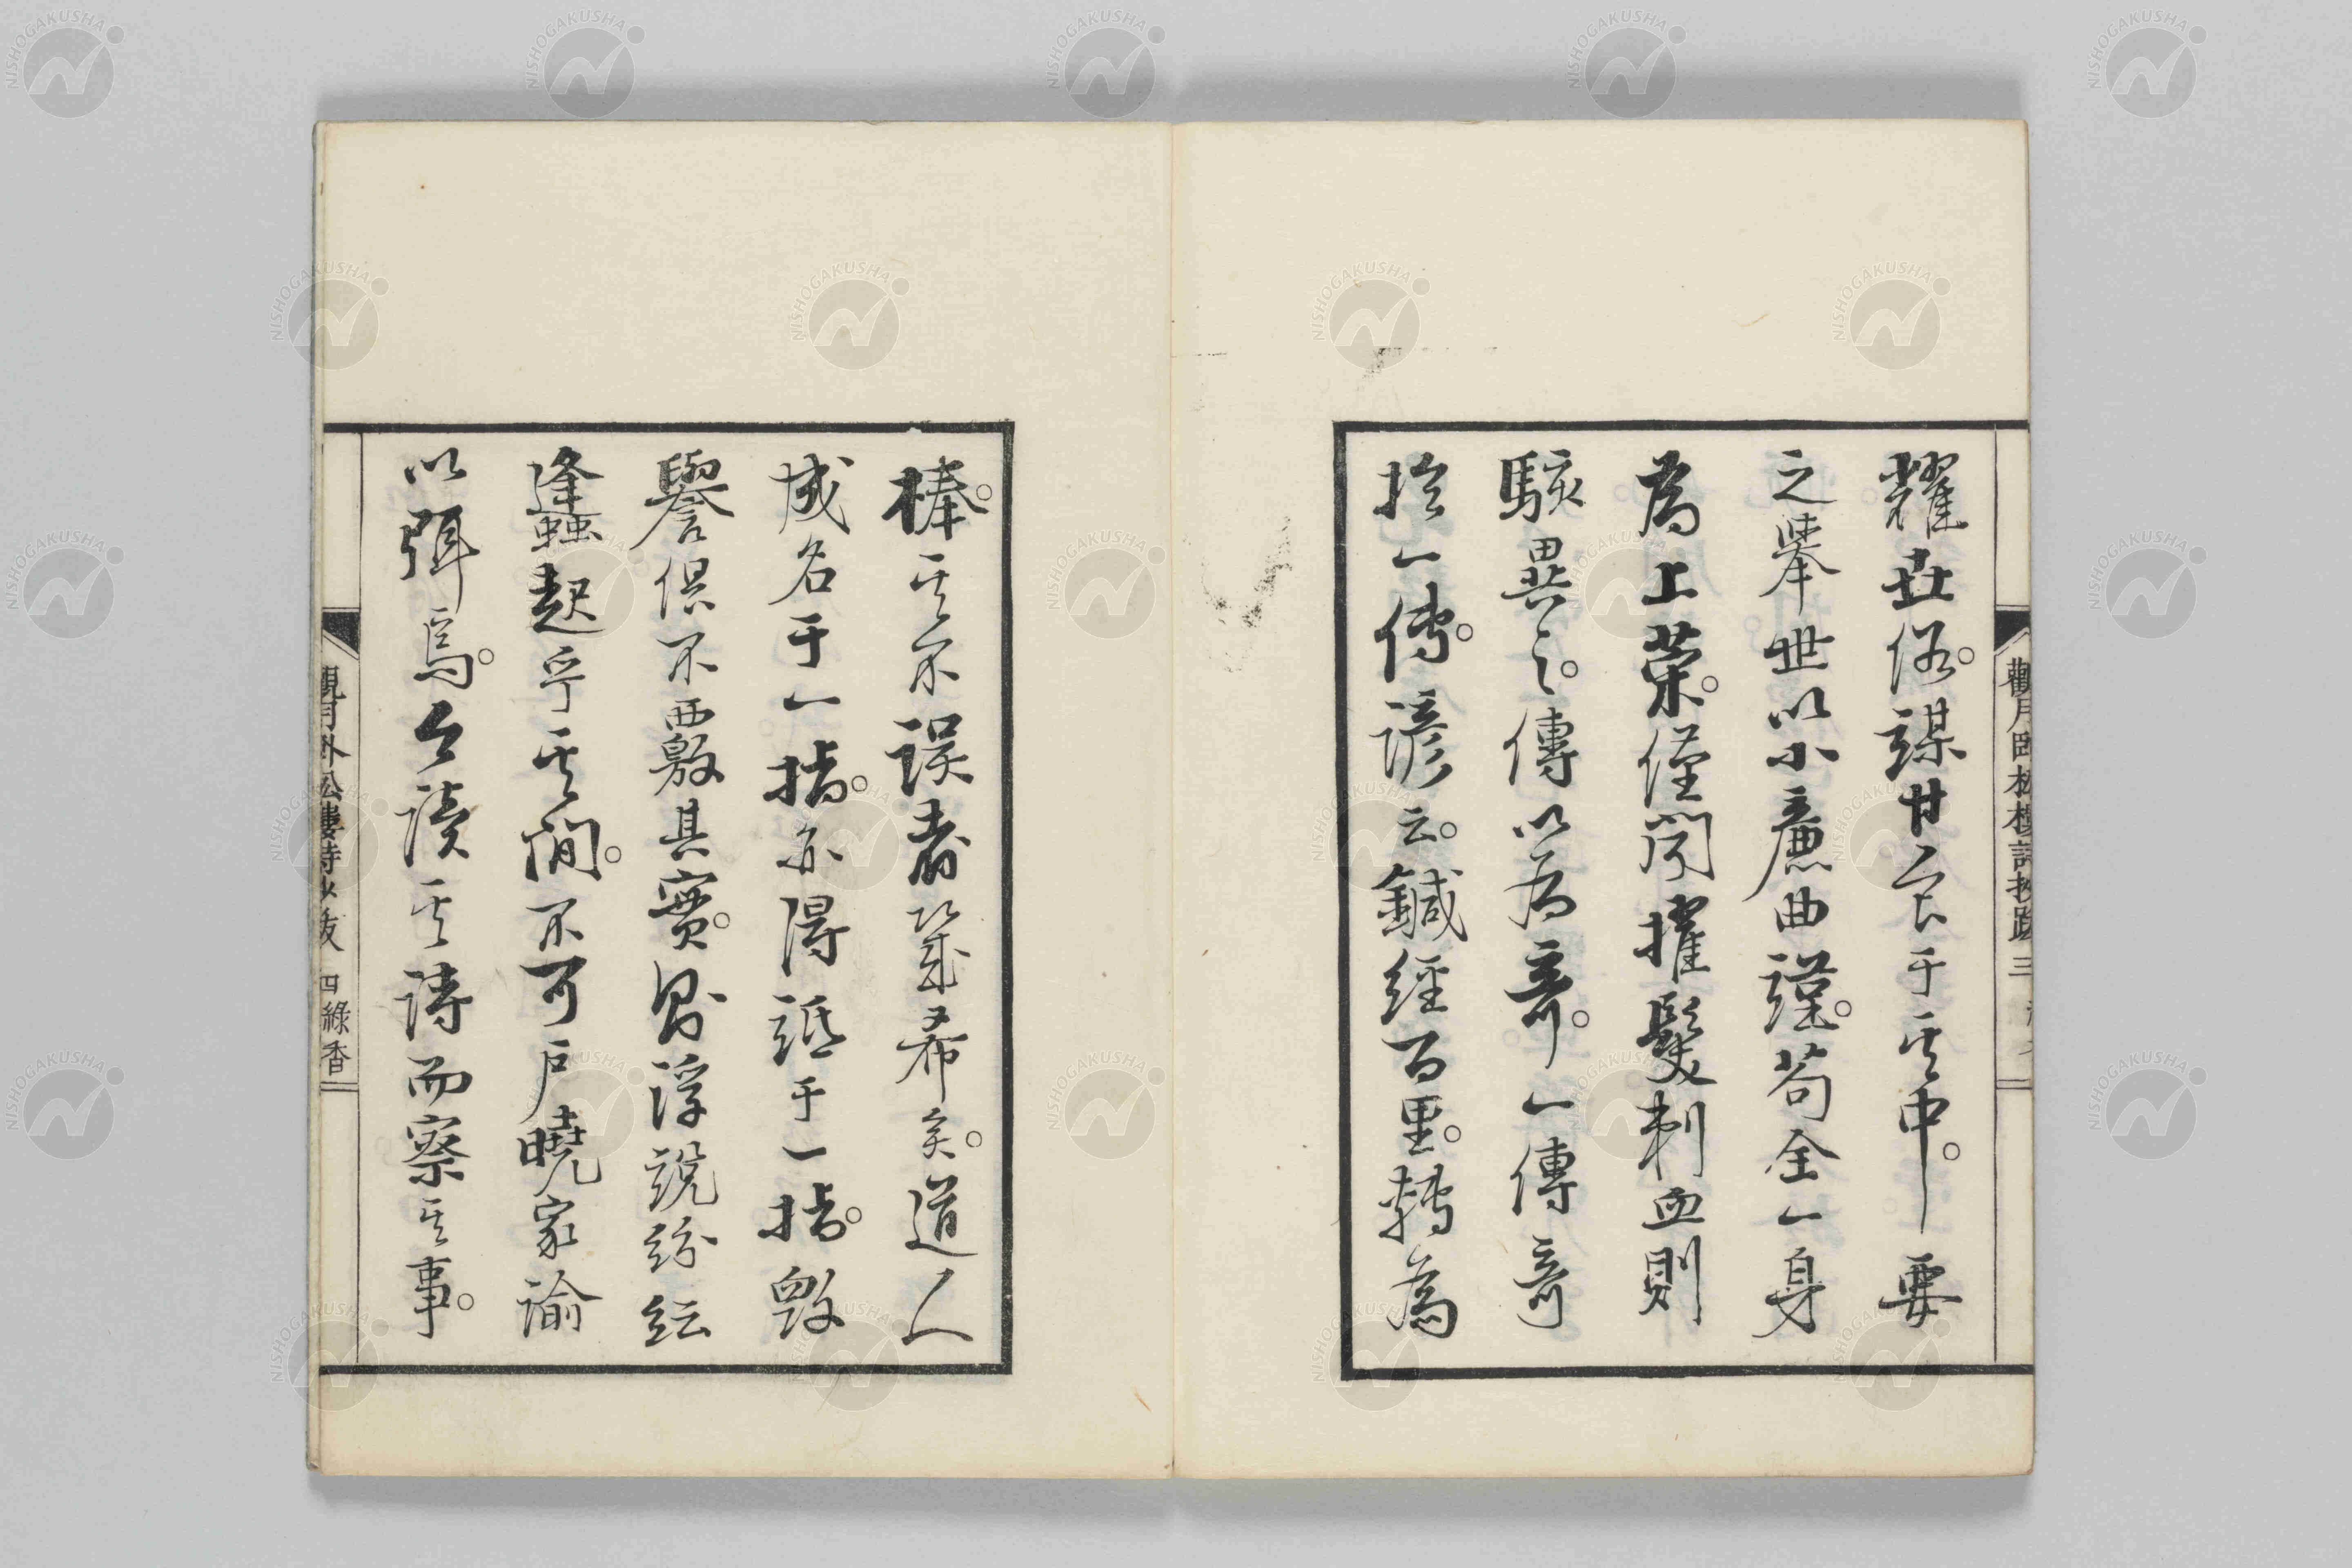 耀世俗。謀甘人于其中。要
之擧世以小廉曲謹。苟全一身
為上策。僅聞擢髮刺血則
駭異之。傳以為奇。一傳奇
於一傳。諺云。鍼經百里。轉為
棒。其不誤者幾希矣。道人
成名于一指。亦得詆于一指。毀
譽倶不覈其實。則浮説紛紜
蠭起乎其間。不可戸曉家諭
以弭焉。今讀其詩而察其事。
觀月臥松樓詩抄跋 三
觀月臥松樓詩抄跋 四 綠香
NISHOGAKUSHA